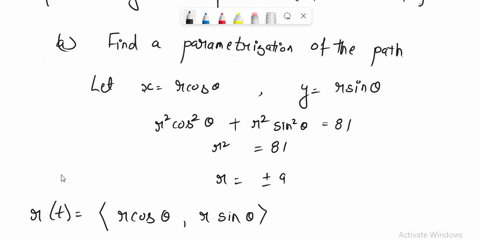 a) Find a parametrization of the path
Let x = rcosθ , y = rsinθ
r²cos²θ + r²sin²θ = 81
r² = 81
r = ± 9
r(t) = ⟨ rcosθ , r sinθ ⟩
Activate Windows